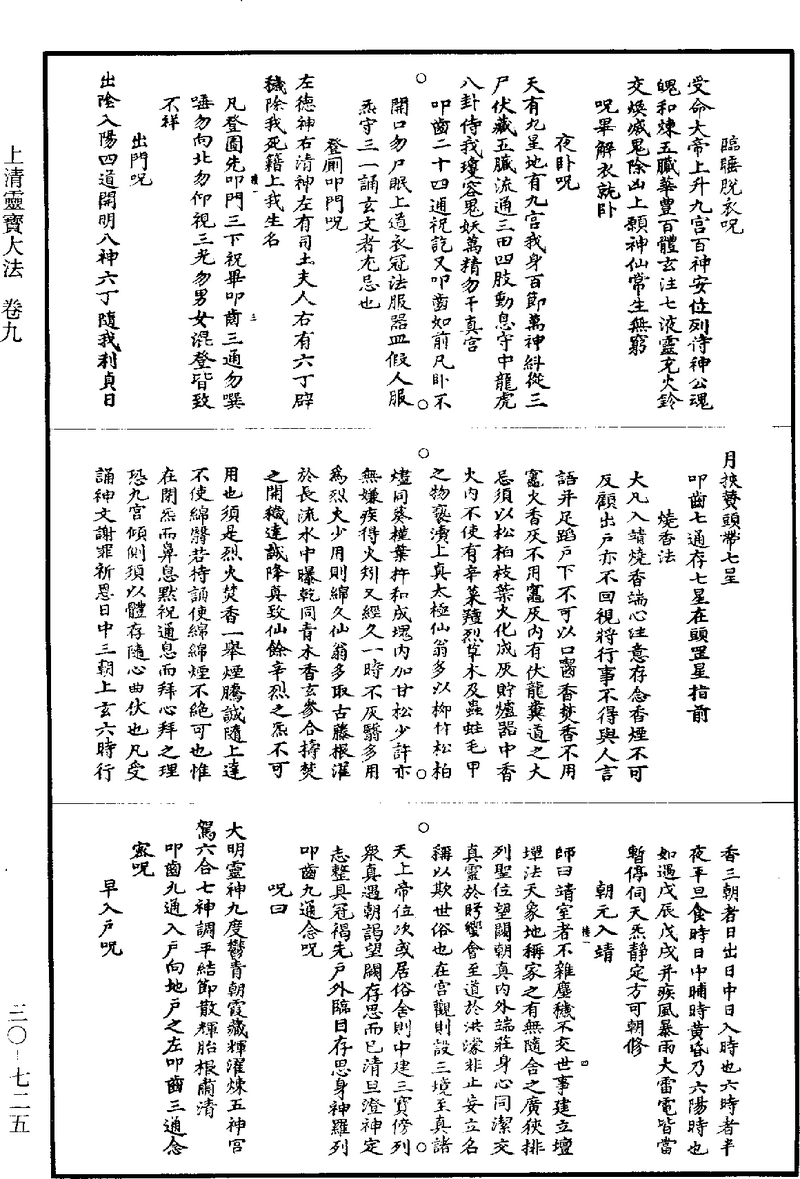 臨睡脫衣呪
受命大帝上升九宮百神安位列侍神公魂
魄和煉五臟華豊百體玄注七液靈充火鈴
交煥滅鬼除凶上願神仙常生無窮
呪畢解衣就卧
夜卧呪
天有九星地有九宮我身百節萬神糾從三
尸伏藏五臟流通三田四肢動息守中龍虎
八卦侍我瓊容鬼妖萬精勿干真宮
叩齒二十四通祝訖又叩齒如前凡卧不
開口勿尸眠上道衣冠法服器皿假人服
炁守三一誦玄文者尤忌也
登厠叩門呪
左德神右清神左有司土夫人右有六丁辟
穢除我死籍上我生名
凡登圊先叩門三下祝畢叩齒三通勿噀
唾勿向北勿仰視三光勿男女混登皆致
不祥
出門呪
出陰入陽四道開明八神六丁隨我利貞日
月挾贊頭帶七星
叩齒七通存七星在頭罡星指前
燒香法
大凡入靖燒香端心注意存念香煙不可
反顧出戶亦不回視將行事不得與人言
語并足蹈戶下不可以口囓香焚香不用
竈火香灰不用竈灰內有伏龍糞道之大
忌須以松柏枝葉火化成灰貯爐器中香
火內不使有辛菜羶烈草木及蟲蛀毛甲
之物褻瀆上真太極仙翁多以柳竹松柏
燼同葵槿葉杵和成塊內加甘松少許亦
無嫌疾得火烈又經久一時不灰翳多用
爲烈火少用則綿久仙翁多取古藤根濯
於長流水中曝乾同青木香玄參合擣焚
之開穢達誠降真致仙餘辛烈之炁不可
用也須是烈火焚香一舉煙騰誠隨上達
不使綿翳若持誦使綿綿煙不絕可也惟
在閉炁而鼻息默祝通息而拜心拜之理
恐九宮傾側須以體存隨心曲伏也凡受
誦神文謝罪祈恩日中三朝上玄六時行
香三朝者日出日中日入時也六時者半
夜平旦食時日中晡時黃昏乃六陽時也
如遇戊辰戊戌并疾風暴雨大雷電皆當
暫停伺天炁靜定方可朝修
朝元入靖
師曰靖室者不雜塵穢不交世事建立壇
墠法天象地稱家之有無隨舍之廣狹排
列聖位望闕朝真內外端莊身心同潔交
真靈於肹蠁會至道於洪濛非止安立名
稱以欺世俗也在宮觀則設三境至真諸
天上帝位次或居俗舍則中建三寶傍列
衆真遇朝謁望闕存思而已清旦澄神定
志整具冠褐先戶外臨目存思身神羅列
叩齒九通念呪
呪曰
大明靈神九度鬱青朝霞藏輝濯煉五神宮
駕六合七神調平結節散輝胎根肅清
叩齒九通入戶向地戶之左叩齒三通念
密呪
早入戶呪
上清靈寶大法 卷九
三〇－七二五